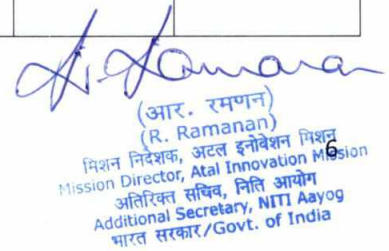 R. Ramanan
(आर. रमणन)
(R. Ramanan)
मिशन निदेशक, अटल इनोवेशन मिशन
6
Mission Director, Atal Innovation Mission
अतिरिक्त सचिव, निति आयोग
Additional Secretary, NITI Aayog
भारत सरकार/Govt. of India